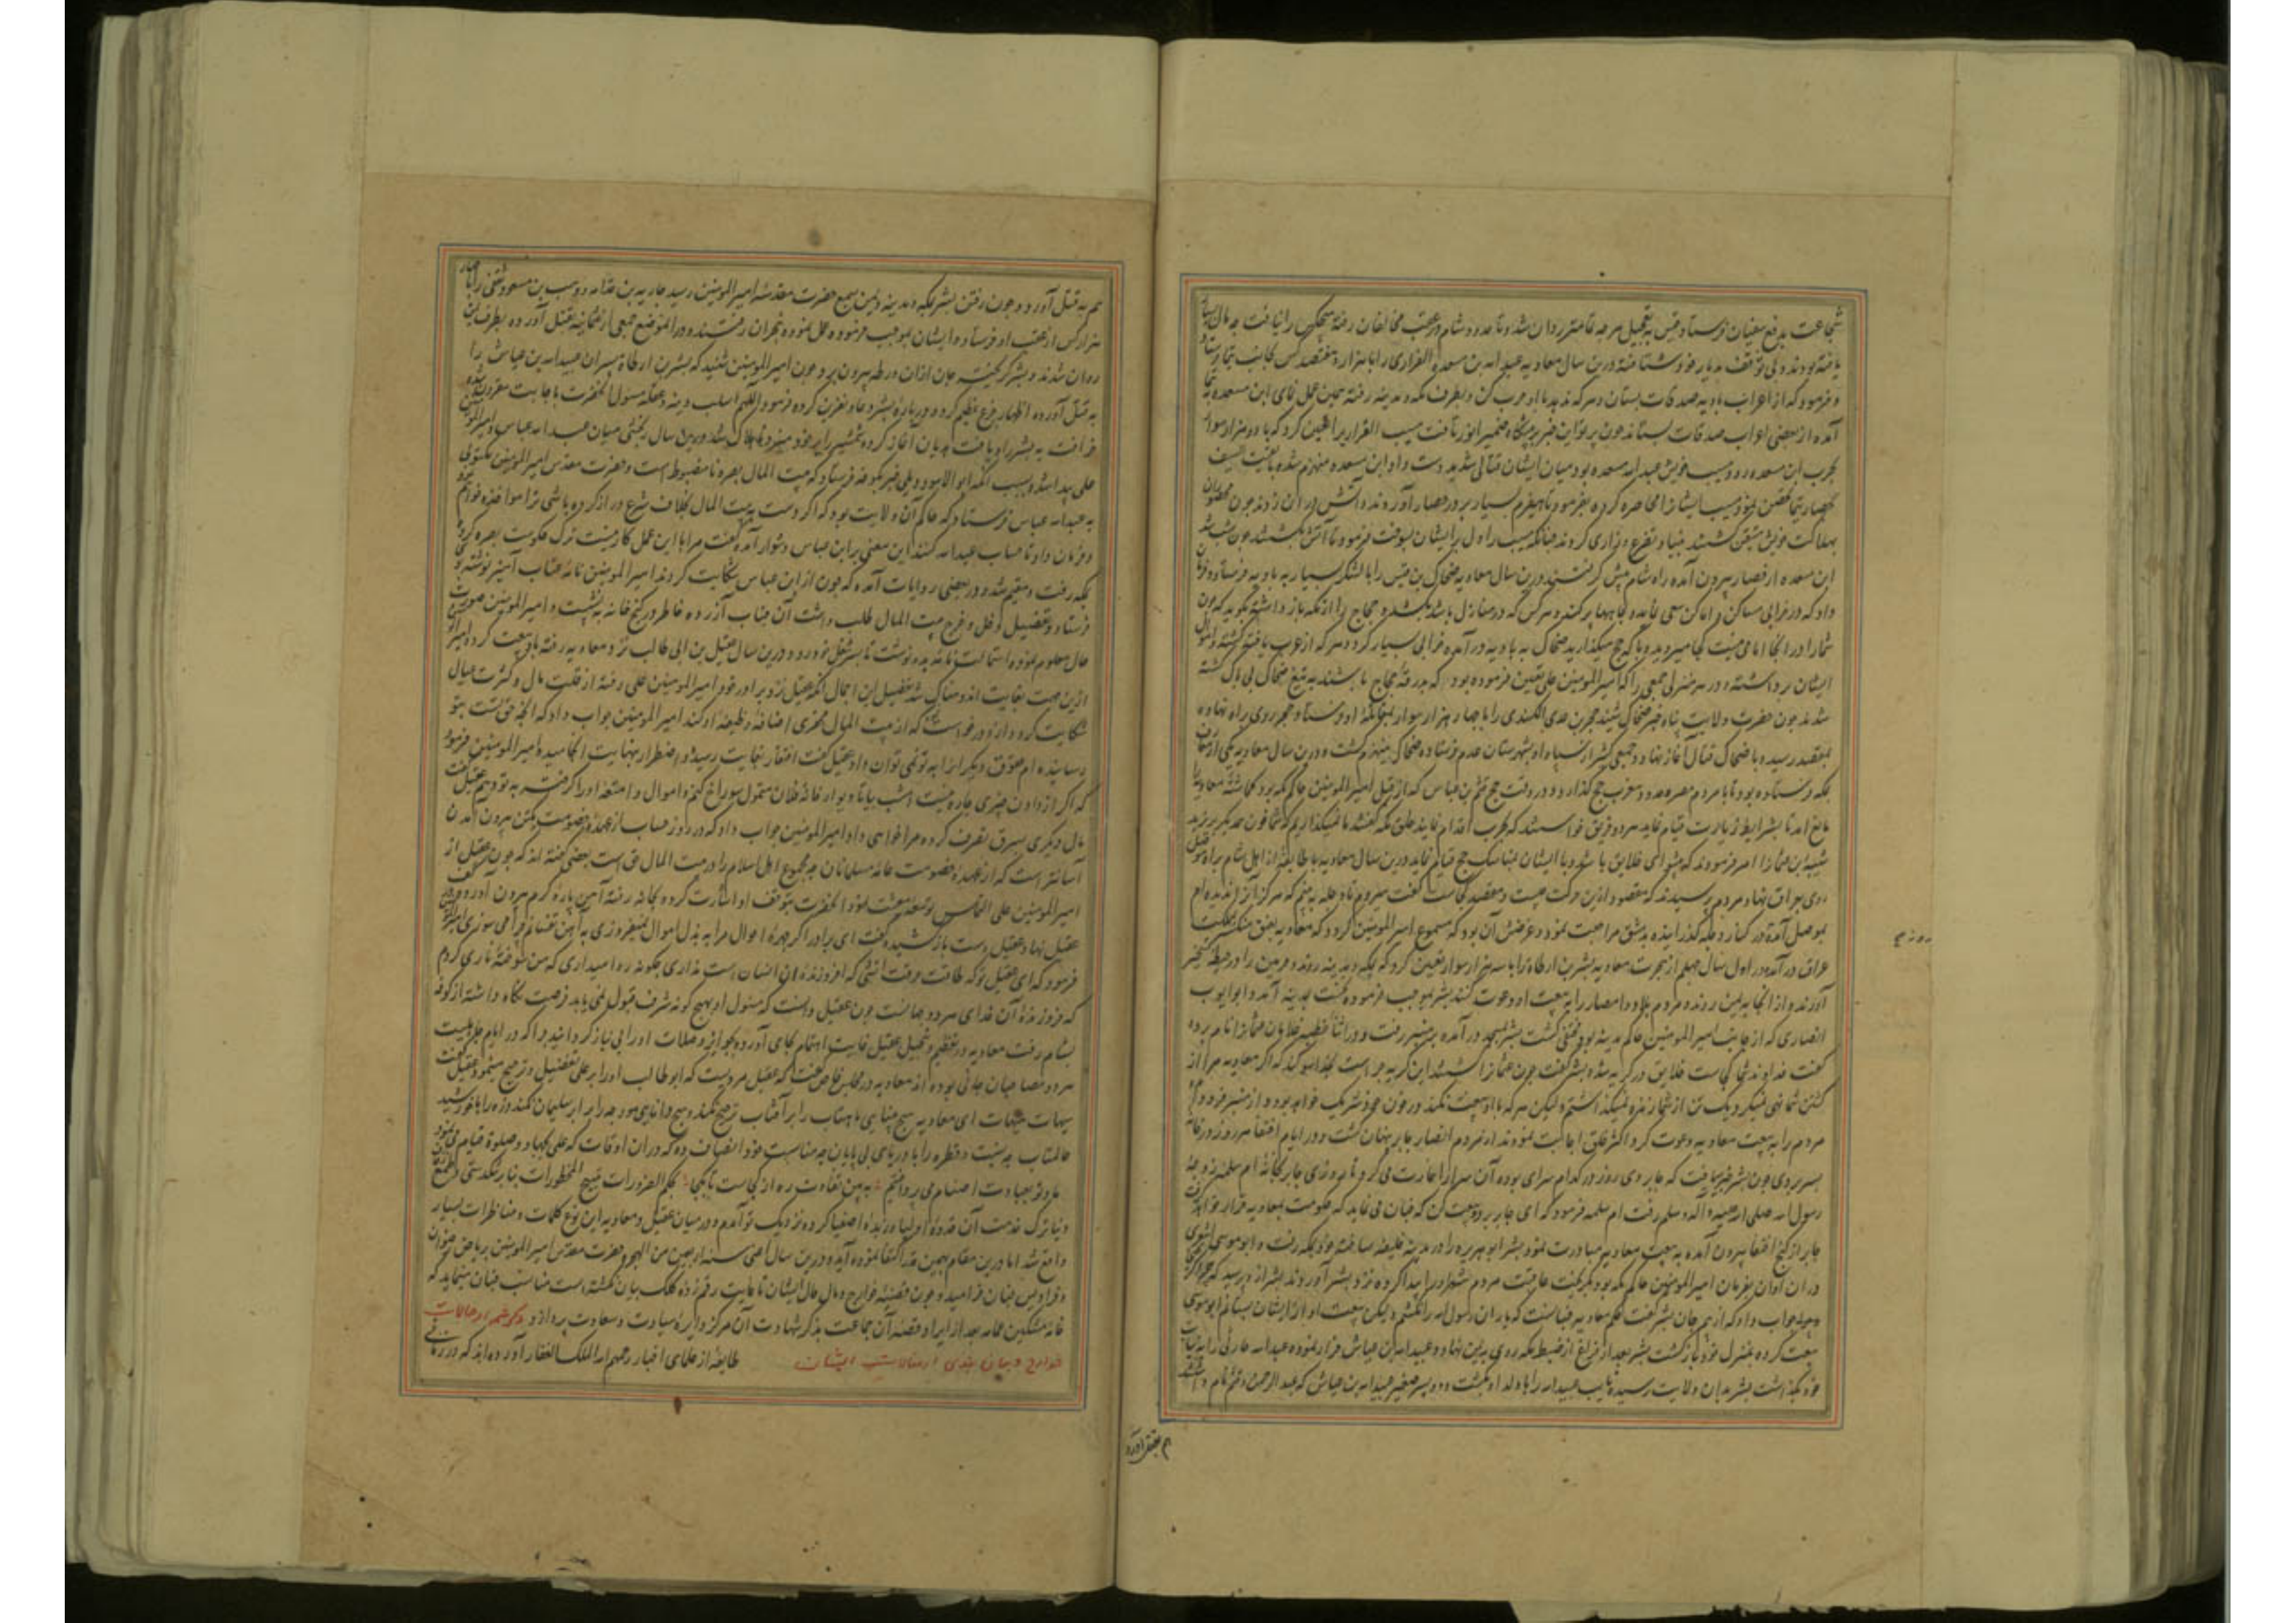 شجاعت بدفع سفیان فرستاد و قیس به تعجیل هر چه تمامتر روان شد و تا حدود شام در عقب مخالفان رفته هیچکس را نیافت چه مال بسیار
یافته بودند و بی توقف بدیار خود شتافته درین سال معاویه عبد الله بن مسعده الفزاری را با هزار و هفتصد کس بجانب تیما فرستاد
و فرمود که از اعراب بادیه صدقات بستان و هر که ندهد با او حرب کن و بطرف مکه و مدینه رفته همین عمل نمای ابن مسعده به تیما
آمده از بعضی اعراب صدقات بستاند چون پرتو این خبر بر پیشگاه ضمیر انور تافت مسیب الفزاری را تعیین کرد که با دو هزار سوار
بحرب ابن مسعده رود و مسیب خویش عبد الله مسعده بود میان ایشان قتالی شدید دست داد و ابن مسعده منهزم شده بقیت السیف
بحصار تیما تحصن نمود و مسیب ایشان را محاصره کرده بفرمود تا هیزم بسیار بر در حصار آوردند و آتش در آن زدند چون محصوران
بهلاکت خویش متیقن گشتند بنیاد تضرع و زاری کردند چنانکه مسیب را دل بر ایشان بسوخت فرمود تا آتش بکشتند چون شب شد
ابن مسعده از حصار بیرون آمده راه شام پیش گرفتند و درین سال معاویه ضحاک بن قیس را با لشکر بسیار به بادیه فرستاد و فرمان
داد که در خرابی مساکن و اماکن سعی نماید و چاهها پر کند و هر کس که در منازل باشد بکشد و حجاج را از مکه باز داشته بگوید که چون
شما را در اینجا امامی نیست کجا میروید و با که حج میگذارید ضحاک به بادیه در آمده خرابی بسیار کرد و هر که از عرب یافته کشته و اموال
ایشان برداشته و در هر منزلی جمعی را که امیر المومنین علی تعین فرموده بود که بدرقه حجاج باشند به تیغ ضحاک بی باک کشته
شدند چون حضرت ولایت پناه خبر ضحاک شنید حجر بن عدی الکندی را با چهار هزار سوار بمقابله او فرستاد و حجر روی براه نهاده
بمقصد رسیده با ضحاک قتال آغاز نهاد و جمعی کثیر از سپاه او بشهرستان عدم فرستاده ضحاک منهزم گشت و درین سال معاویه یکی از
بمکه فرستاده بود تا با مردم مصر و حدود مغرب حج گذارد و در وقت حج قثم بن عباس که از قبل امیر المومنین حاکم مکه بود گماشته معاویه را
مانع آمد تا بشرایط زیارت قیام نماید هر دو فریق خواستند که بحرب اقدام نمایند خلق مکه گفتند ما نمیگذاریم که شما خون همدیگر بریزید
شیبه ابن عثمان را امر فرمودند که پیشوای خلایق باشد و با ایشان مناسک حج قیام نماید و درین سال معاویه با طایفه از اهل شام براه موصل
روی بعراق نهاد مردم پرسیدند که مقصود ازین حرکت چیست و مقصد کجاست گفت میروم تا دجله به بینم که هرگز آنرا ندیده ام
بموصل آمده در کنار دجله گذرانیده بدمشق مراجعت نمود و غرضش آن بود که مسموع امیر المومنین گردد که معاویه بعزم مملکت
عراق در آمد و در اول سال چهلم از هجرت معاویه بشر بن ارطاة را با سه هزار سوار تعیین کرد که بمکه و مدینه روند و حرمین را در حیطه تسخیر
آورند و از آنجا به یمن روند و مردم بلاد و امصار را به بیعت او دعوت کنند بشر بموجب فرموده نخست بمدینه آمد و ابو ایوب
انصاری که از جانب امیر المومنین حاکم مدینه بود مختفی گشت بشر بمسجد در آمده بر منبر رفت و در اثناء خطبه فلابان عثمان را نام برده
گفت خداوند شما کجاست خلایق در گریه شد و بشر گفت چون عثمان را کشتند این گریه چراست بخدا سوگند که اگر معاویه مرا از
کشتن شما نهی نمیکرد یک تن از شما زنده نمیگذاشتم و لیکن هر که با او بیعت نکند در خون خود شریک خواهد بود و از منبر فرود آمد
مردم را به بیعت معاویه دعوت کرد اکثر خلق اجابت نمودند از مردم انصار جابر پنهان گشت و در ایام اختفا هر روز در خانه
بسر بردی چون بشر خبر یافت که جابر وی روز در کدام سرای بوده آن سرا را غارت می کرد تا روزی جابر بخانه ام سلمه زوجه
رسول الله صلی الله علیه و آله و سلم رفت ام سلمه فرمود که ای جابر برو و بیعت کن که چنان می نماید که حکومت بمعاویه قرار خواهد گرفت
جابر از کنج اختفا بیرون آمده به بیعت معاویه مبادرت نمود بشر ابو هریره را در مدینه خلیفه ساخته خود بمکه رفت و ابو موسی اشعری
در آن اوان بفرمان امیر المومنین حاکم مکه بود بگریخت عاقبت مردم شهر او را پیدا کرده نزد بشر آوردند بشر از وی پرسید که چرا گریختی
جواب داد که از بیم جان بشر گفت حکم معاویه چنانست که یاران رسول الله را نکشم و لیکن بیعت او از ایشان بستانم ابو موسی
بیعت کرده بمنزل خود باز گشت بشر بعد از فراغ از ضبط مکه روی به یمن نهاد و عبید الله بن عباس فرار نموده عبد الله حارثی را به نیابت
خود بگذاشت بشر بدان ولایت رسیده نایب عبید الله را با ولد او بکشت و دو پسر صغیر عبید الله بن عباس که عبد الرحمن و قثم نام داشتند
هم بقتل آورد
روز حج
هم به قتل آورد و چون رفتن بشر بمکه و مدینه و یمن بسمع حضرت مقدسه امیر المومنین رسید جاریه بن قدامه و وهب بن مسعود ثقفی را با چهار
هزار کس از عقب او فرستاد و ایشان بموجب فرموده عمل نموده به نجران رفتند و در آن موضع جمعی از عثمانیه بقتل آورده بطرف یمن
روان شدند و بشر گریخته جان از آن ورطه بیرون برد و چون امیر المومنین شنید که بشر بن ارطاة پسران عبید الله بن عباس را
به قتل آورده اظهار جزع عظیم کرد و درباره بشر دعاء نفرین کرده فرمود اللهم اسلب دینه و عقله مسئول آنحضرت باجابت مقرون شده
خرافت به بشر راه یافت هذیان آغاز کرده شمشیر را بر خود میزد تا هلاک شد و درین سال رنجشی میان عبد الله عباس و امیر المومنین
علی پیدا شد و بسبب آنکه ابو الاسود دیلی خبر بکوفه فرستاد که بیت المال بصره نامضبوط است و حضرت مقدس امیر المومنین مکتوبی
به عبد الله عباس فرستاد که حاکم آن ولایت بود که اگر دست به بیت المال بخلاف شرع دراز کرده باشی ترا مواخذه خواهم نمود
و فرمان داد تا حساب عبد الله کنند این معنی بر ابن عباس دشوار آمده گفت مرا با این عمل کار نیست ترک حکومت بصره کرده
بمکه رفت و مقیم شد و در بعضی روایات آمده که چون از ابن عباس شکایت کردند امیر المومنین نامه عتاب آمیز نوشته بوی
فرستاد و تفصیل دخل و خرج بیت المال طلب داشت آن جناب آزرده خاطر در کنج خانه بنشست و امیر المومنین صورت
حال معلوم نموده استمالت نامه بدو نوشت تا بسر شغل خود رود و درین سال عقیل بن ابی طالب نزد معاویه رفته با وی بیعت کرد و امیر المومنین
ازین جهت بغایت اندوهناک شد تفصیل این اجمال آنکه عقیل نزد برادر خود امیر المومنین علی رفته از قلت مال و کثرت عیال
شکایت کرد و از او درخواست که از بیت المال چیزی اضافه وظیفه او کند امیر المومنین جواب داد که آنچه حق تست بتو
رسانیده ام حقوق دیگران را به تو نمی توان داد عقیل گفت افتقار بغایت رسید و اضطرار بنهایت انجامید امیر المومنین فرمود
که اگر از دادن چیزی چاره نیست امشب بیا تا دیوار خانه فلان متمول سوراخ کنم و اموال و امتعه او را گرفته به تو دهم عقیل گفت
مال دیگری سرق تصرف کرده مرا خواهی داد امیر المومنین جواب داد که در روز حساب از عهده خصومت یکتن بیرون آمدن
آسانتر است که از عهده خصومت عامه مسلمانان چه مجموع اهل اسلام را در بیت المال حق است بعضی گفته اند که چون عقیل از
امیر المومنین علی التماس توسعه معیشت نمود آنحضرت بتوقف او اشارت کرده بخانه رفته آهن پاره گرم بیرون آورد و بر کف
عقیل نهاد عقیل دست باز کشیده گفت ای برادر اگر چهره احوال مرا به بذل اموال نمیفروزی به آهن تفتانم چرا می سوزی امیر المومنین
فرمود که ای عقیل تو که طاقت حرقت آتشی که افروزنده آن انسان است نداری چگونه روا میداری که من سوخته ناری گردم
که فروزنده آن خدای هر دو جهانست چون عقیل دانست که مسئول او بهیچ گونه شرف قبول نمی یابد فرصت نگاه داشته از کوفه
بشام رفت معاویه در تعظیم و تبجیل عقیل غایت اهتمام بجای آورده بجوایز و صلات او را بی نیاز گردانید و اگر در ایام جاهلیت
هر دو مصاحبان جانی بوده اند معاویه در مجلس خاص گفت که عقیل مردیست که ابو طالب او را بر علی تفضیل و ترجیح مینمود عقیل گفت
هیهات هیهات ای معاویه هیچ بینایی ماهتاب را بر آفتاب ترجیح نکند و هیچ دانایی مورچه را برابر سلیمان نکند ذره را با خورشید
عالمتاب چه نسبت و قطره را با دریای بی پایان چه مناسبت خود انصاف ده که در آن اوقات که علی بجهاد و صلوة قیام می نمود
ما و تو بعبادت اصنام می پرداختیم به بین تفاوت ره از کجاست تا بکجا بحکم الضرورات تبیح المحظورات بنابر تنگدستی و طمع
دنیا ترک خدمت آن قدوه اولیا و زبده اصفیا کرده نزدیک تو آمدم و در میان عقیل و معاویه این نوع کلمات و مناظرات بسیار
واقع شد اما درین مقام بهمین قدر اکتفا نموده آید و درین سال اعنی سنه اربعین من الهجره حضرت مقدس امیر المومنین بریاض رضوان
و فرادیس جنان خرامید و چون قضیه خوارج و مآل حال ایشان تا غایت رقم زده کلک بیان نگشته است مناسب چنان مینماید که
خامه مشکین عمامه بعد از ایراد قصه آن جماعت بذکر شهادت آن مرکز دایره سیادت و سعادت پردازد ذکر شمه از حالات
خوارج و بیان بندی از مقالات ایشان طایفه از علمای اخبار رحمهم الله الملک الغفار آورده اند که در زمانی